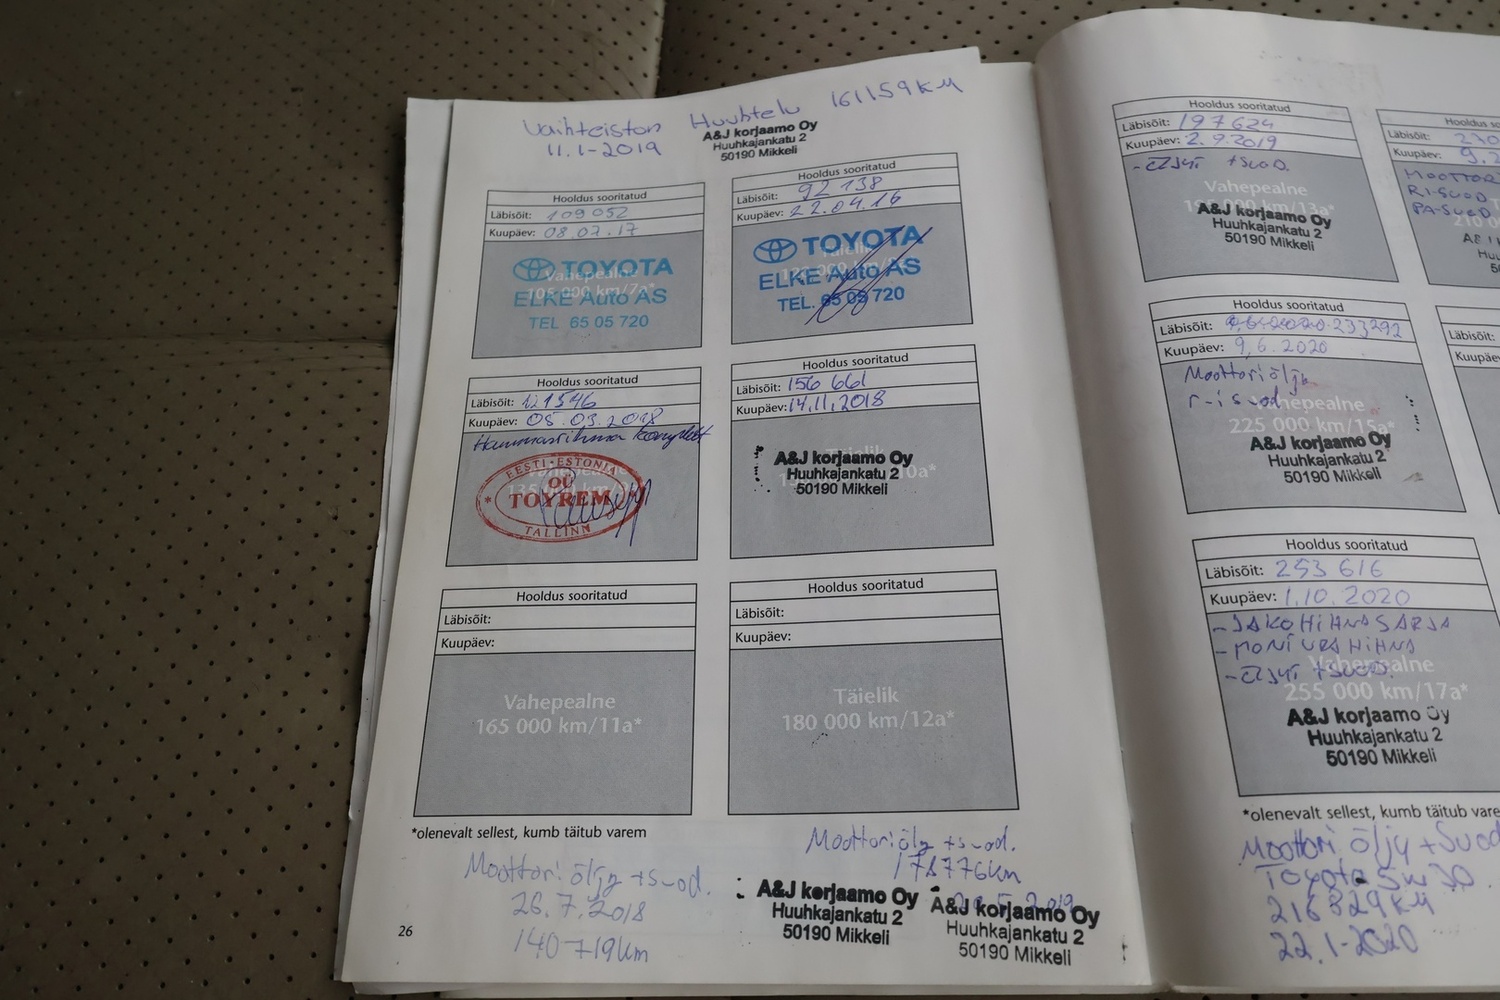 Vaihteiston Huuhtelu 161159KM
11.1-2019
A&J korjaamo Oy
Huuhkajankatu 2
50190 Mikkeli
Hooldus sooritatud
Läbisõit: 109 052
Kuupäev: 08.02.17
Vahepealne
105 000 km/7a*
TOYOTA
ELKE Auto AS
TEL 65 05 720
Hooldus sooritatud
Läbisõit: 92 138
Kuupäev: 22.04.16
Täielik
TOYOTA
ELKE Auto AS
TEL. 65 05 720
Hooldus sooritatud
Läbisõit:
Kuupäev: 05.03.2018
Hammasrihma
EESTI·ESTONIA
OÜ
TOYREM
TALLINN
Hooldus sooritatud
Läbisõit: 156 661
Kuupäev: 14.11.2018
A&J korjaamo Oy
Huuhkajankatu 2
50190 Mikkeli
Hooldus sooritatud
Läbisõit:
Kuupäev:
Vahepealne
165 000 km/11a*
Hooldus sooritatud
Läbisõit:
Kuupäev:
Täielik
180 000 km/12a*
*olenevalt sellest, kumb täitub varem
Moottori öljy +suod.
26.7.2018
140719km
Moottoriöljy +suod.
178776km
A&J korjaamo Oy
Huuhkajankatu 2
50190 Mikkeli
A&J korjaamo Oy
Huuhkajankatu 2
50190 Mikkeli
26
Hooldus sooritatud
Läbisõit: 197624
Kuupäev: 2.9.2019
- ÖLJYT +SUOD.
Vahepealne
A&J korjaamo Oy
Huuhkajankatu 2
50190 Mikkeli
Läbisõit:
Kuupäev:
MOOTTORI
RI-SUOD
PA-SUOD
Hooldus sooritatud
Läbisõit: 233292
Kuupäev: 9.6.2020
Moottoriöljy
r-i suod
Vahepealne
225 000 km/15a*
A&J korjaamo Oy
Huuhkajankatu 2
50190 Mikkeli
Läbisõit:
Hooldus sooritatud
Läbisõit: 253 616
Kuupäev: 1.10.2020
- JAKOHIHNASARJA
- MONIURAHIHNA
- ÖLJYT +SUOD.
Vahepealne
255 000 km/17a*
A&J korjaamo Oy
Huuhkajankatu 2
50190 Mikkeli
*olenevalt sellest, kumb täitub
Moottori öljy +Suod
Toyota 5w30.
216829KM
22.1-2020